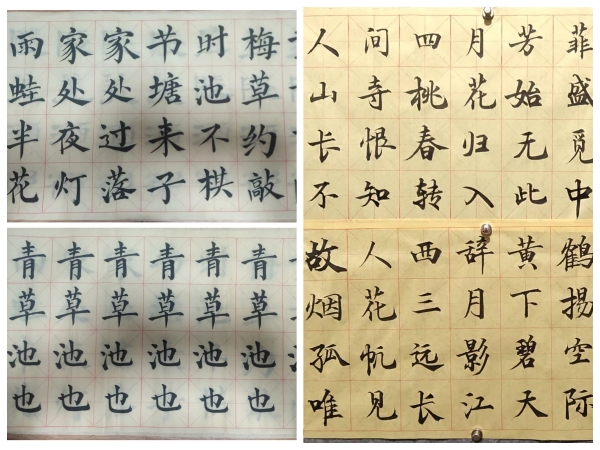 梅时节家家雨
草池塘处处蛙
约不来过夜半
敲棋子落灯花
人间四月芳菲
山寺桃花始盛
长恨春归无觅
不知转入此中
青青青青青青
草草草草草草
池池池池池池
也也也也也也
故人西辞黄鹤
烟花三月下扬
孤帆远影碧空
唯见长江天际